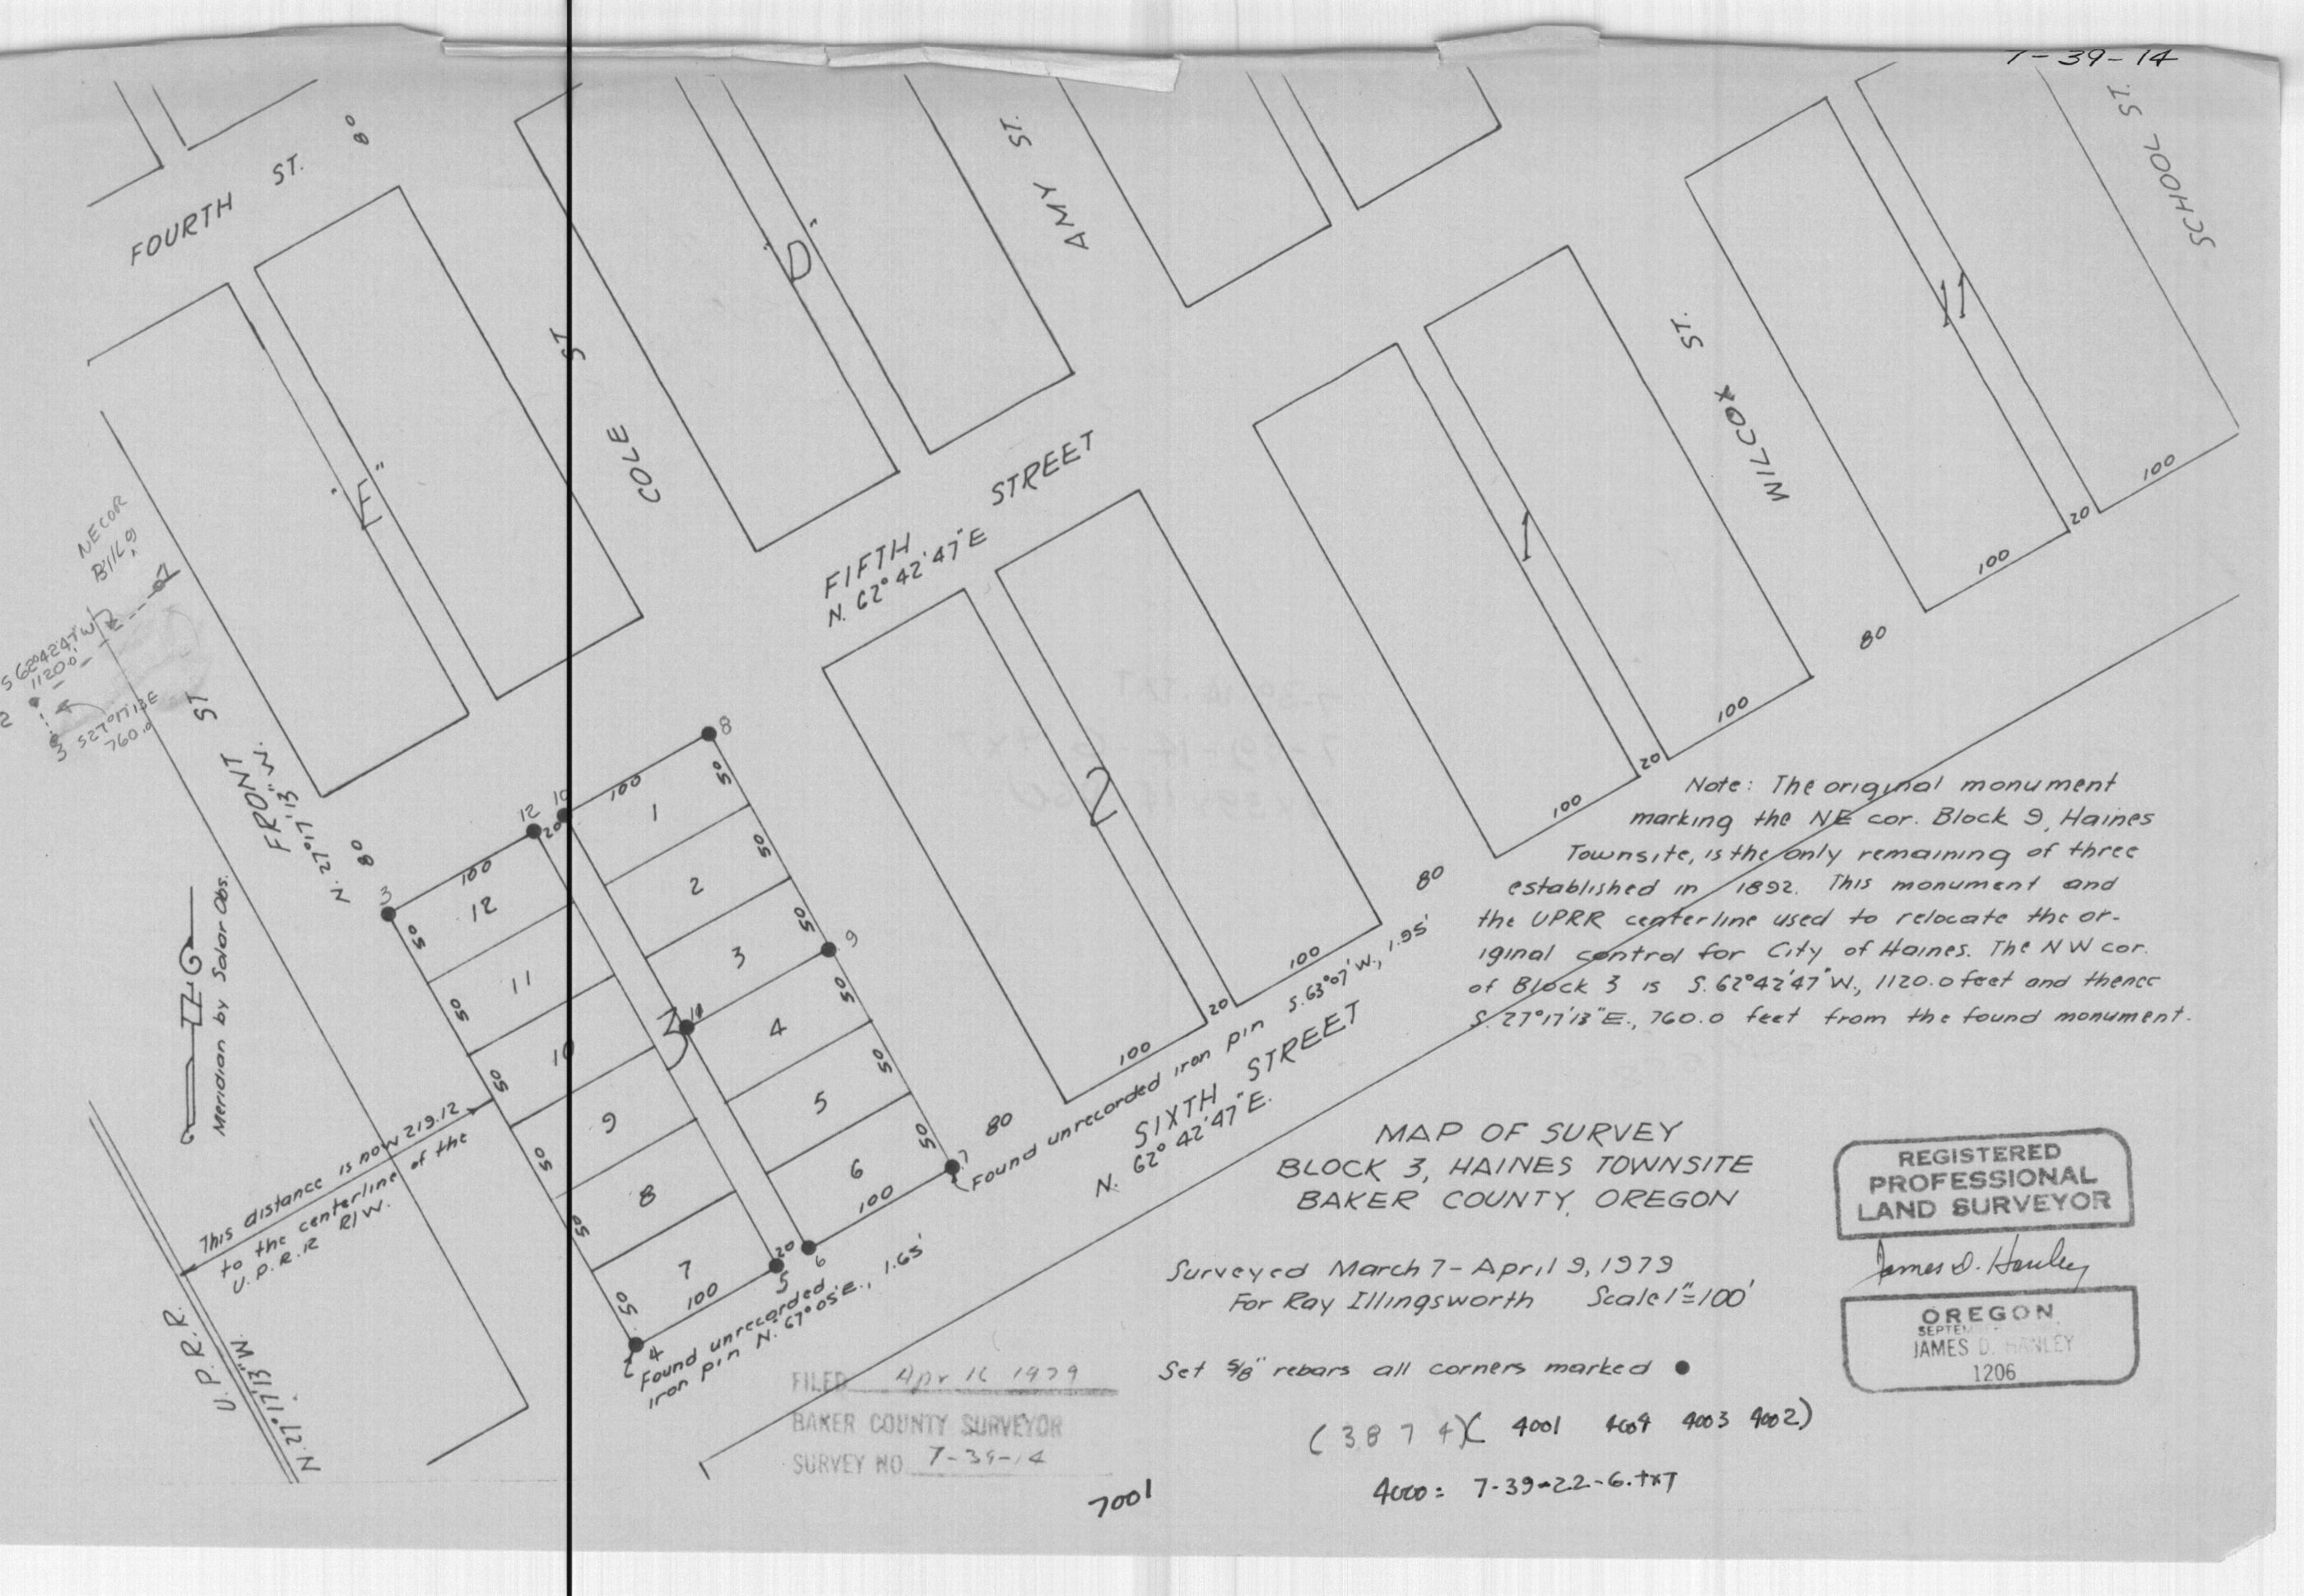 7-39-14
FOURTH ST.
80
COLE ST
"D"
AMY ST.
WILCOX ST.
SCHOOL ST.
11
"E"
1
2
FIFTH STREET
N. 62° 42' 47" E
NE COR
Blk 9
S 62°42'47"W
1120.0'
S27°17'13E
760.0
2
3
FRONT ST
N. 27°17'13" W.
80
Meridian by Solar Obs.
3
12
10
8
9
11
7
6
5
4
100
20
100
12
11
10
9
8
7
1
2
3
4
5
6
3
50
50
50
50
50
50
50
50
50
50
50
50
100
20
100
100
20
100
100
20
100
100
20
100
80
80
80
This distance is now 219.12
to the centerline of the
U.P.R.R R/W.
U.P.R.R.
N. 27°17'13" W.
Found unrecorded
iron pin N. 67°05'E., 1.65'
Found unrecorded iron pin S. 63°07' W., 1.95'
SIXTH STREET
N. 62° 42' 47" E.
Note: The original monument
marking the NE cor. Block 9, Haines
Townsite, is the only remaining of three
established in 1892. This monument and
the UPRR centerline used to relocate the or-
iginal control for City of Haines. The NW cor.
of Block 3 is S. 62°42'47" W., 1120.0 feet and thence
S. 27°17'13" E., 760.0 feet from the found monument.
MAP OF SURVEY
BLOCK 3, HAINES TOWNSITE
BAKER COUNTY, OREGON
Surveyed March 7 - April 9, 1979
For Ray Illingsworth Scale 1"=100'
Set 5/8" rebars all corners marked ●
(3874)( 4001 4004 4003 4002)
4000 = 7-39-22-6.txT
7001
FILED Apr 16 1979
BAKER COUNTY SURVEYOR
SURVEY NO 7-39-14
REGISTERED
PROFESSIONAL
LAND SURVEYOR
James D. Hanley
OREGON
JAMES D. HANLEY
1206